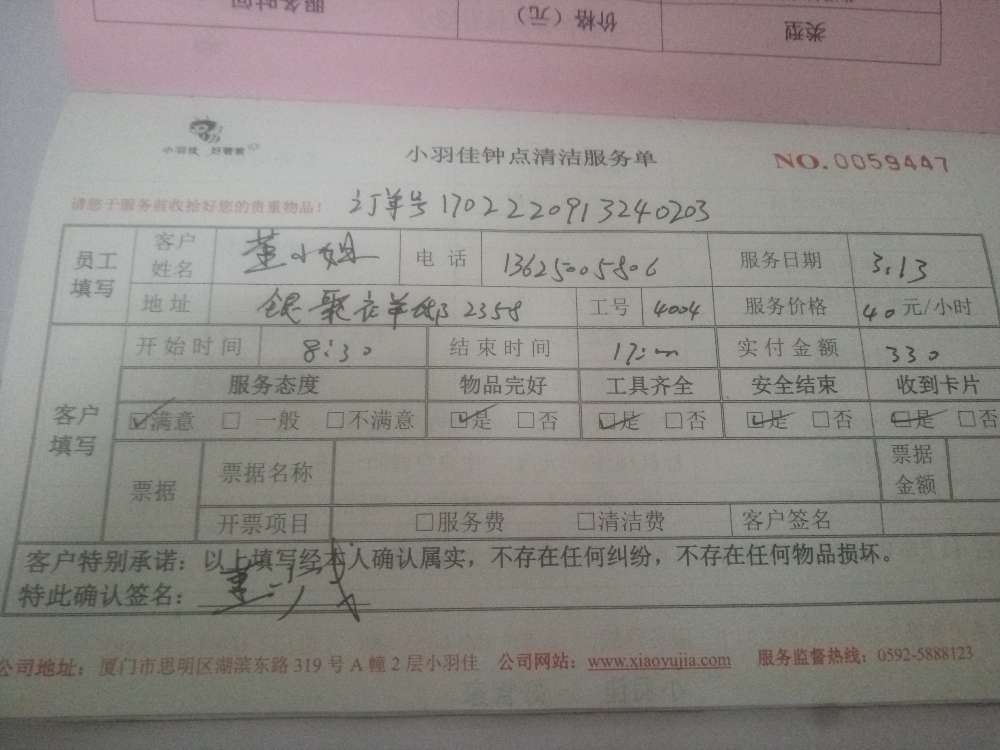 服务时间 价格（元） 类型
小羽佳 好管家
小羽佳钟点清洁服务单 NO.0059447
请您于服务前收拾好您的贵重物品！ 订单号 1702220913240203
员工填写 客户姓名 董小姐 电话 13625005806 服务日期 3.13
地址 2358 工号 4004 服务价格 40元/小时
客户填写 开始时间 8:30 结束时间 17:00 实付金额 330
服务态度 物品完好 工具齐全 安全结束 收到卡片
☑满意 □一般 □不满意 ☑是 □否 ☑是 □否 ☑是 □否 ☑是 □否
票据 票据名称 票据金额
开票项目 □服务费 □清洁费 客户签名
客户特别承诺：以上填写经本人确认属实，不存在任何纠纷，不存在任何物品损坏。
特此确认签名：
公司地址：厦门市思明区湖滨东路319号A幢2层小羽佳 公司网站：www.xiaoyujia.com 服务监督热线：0592-5888123